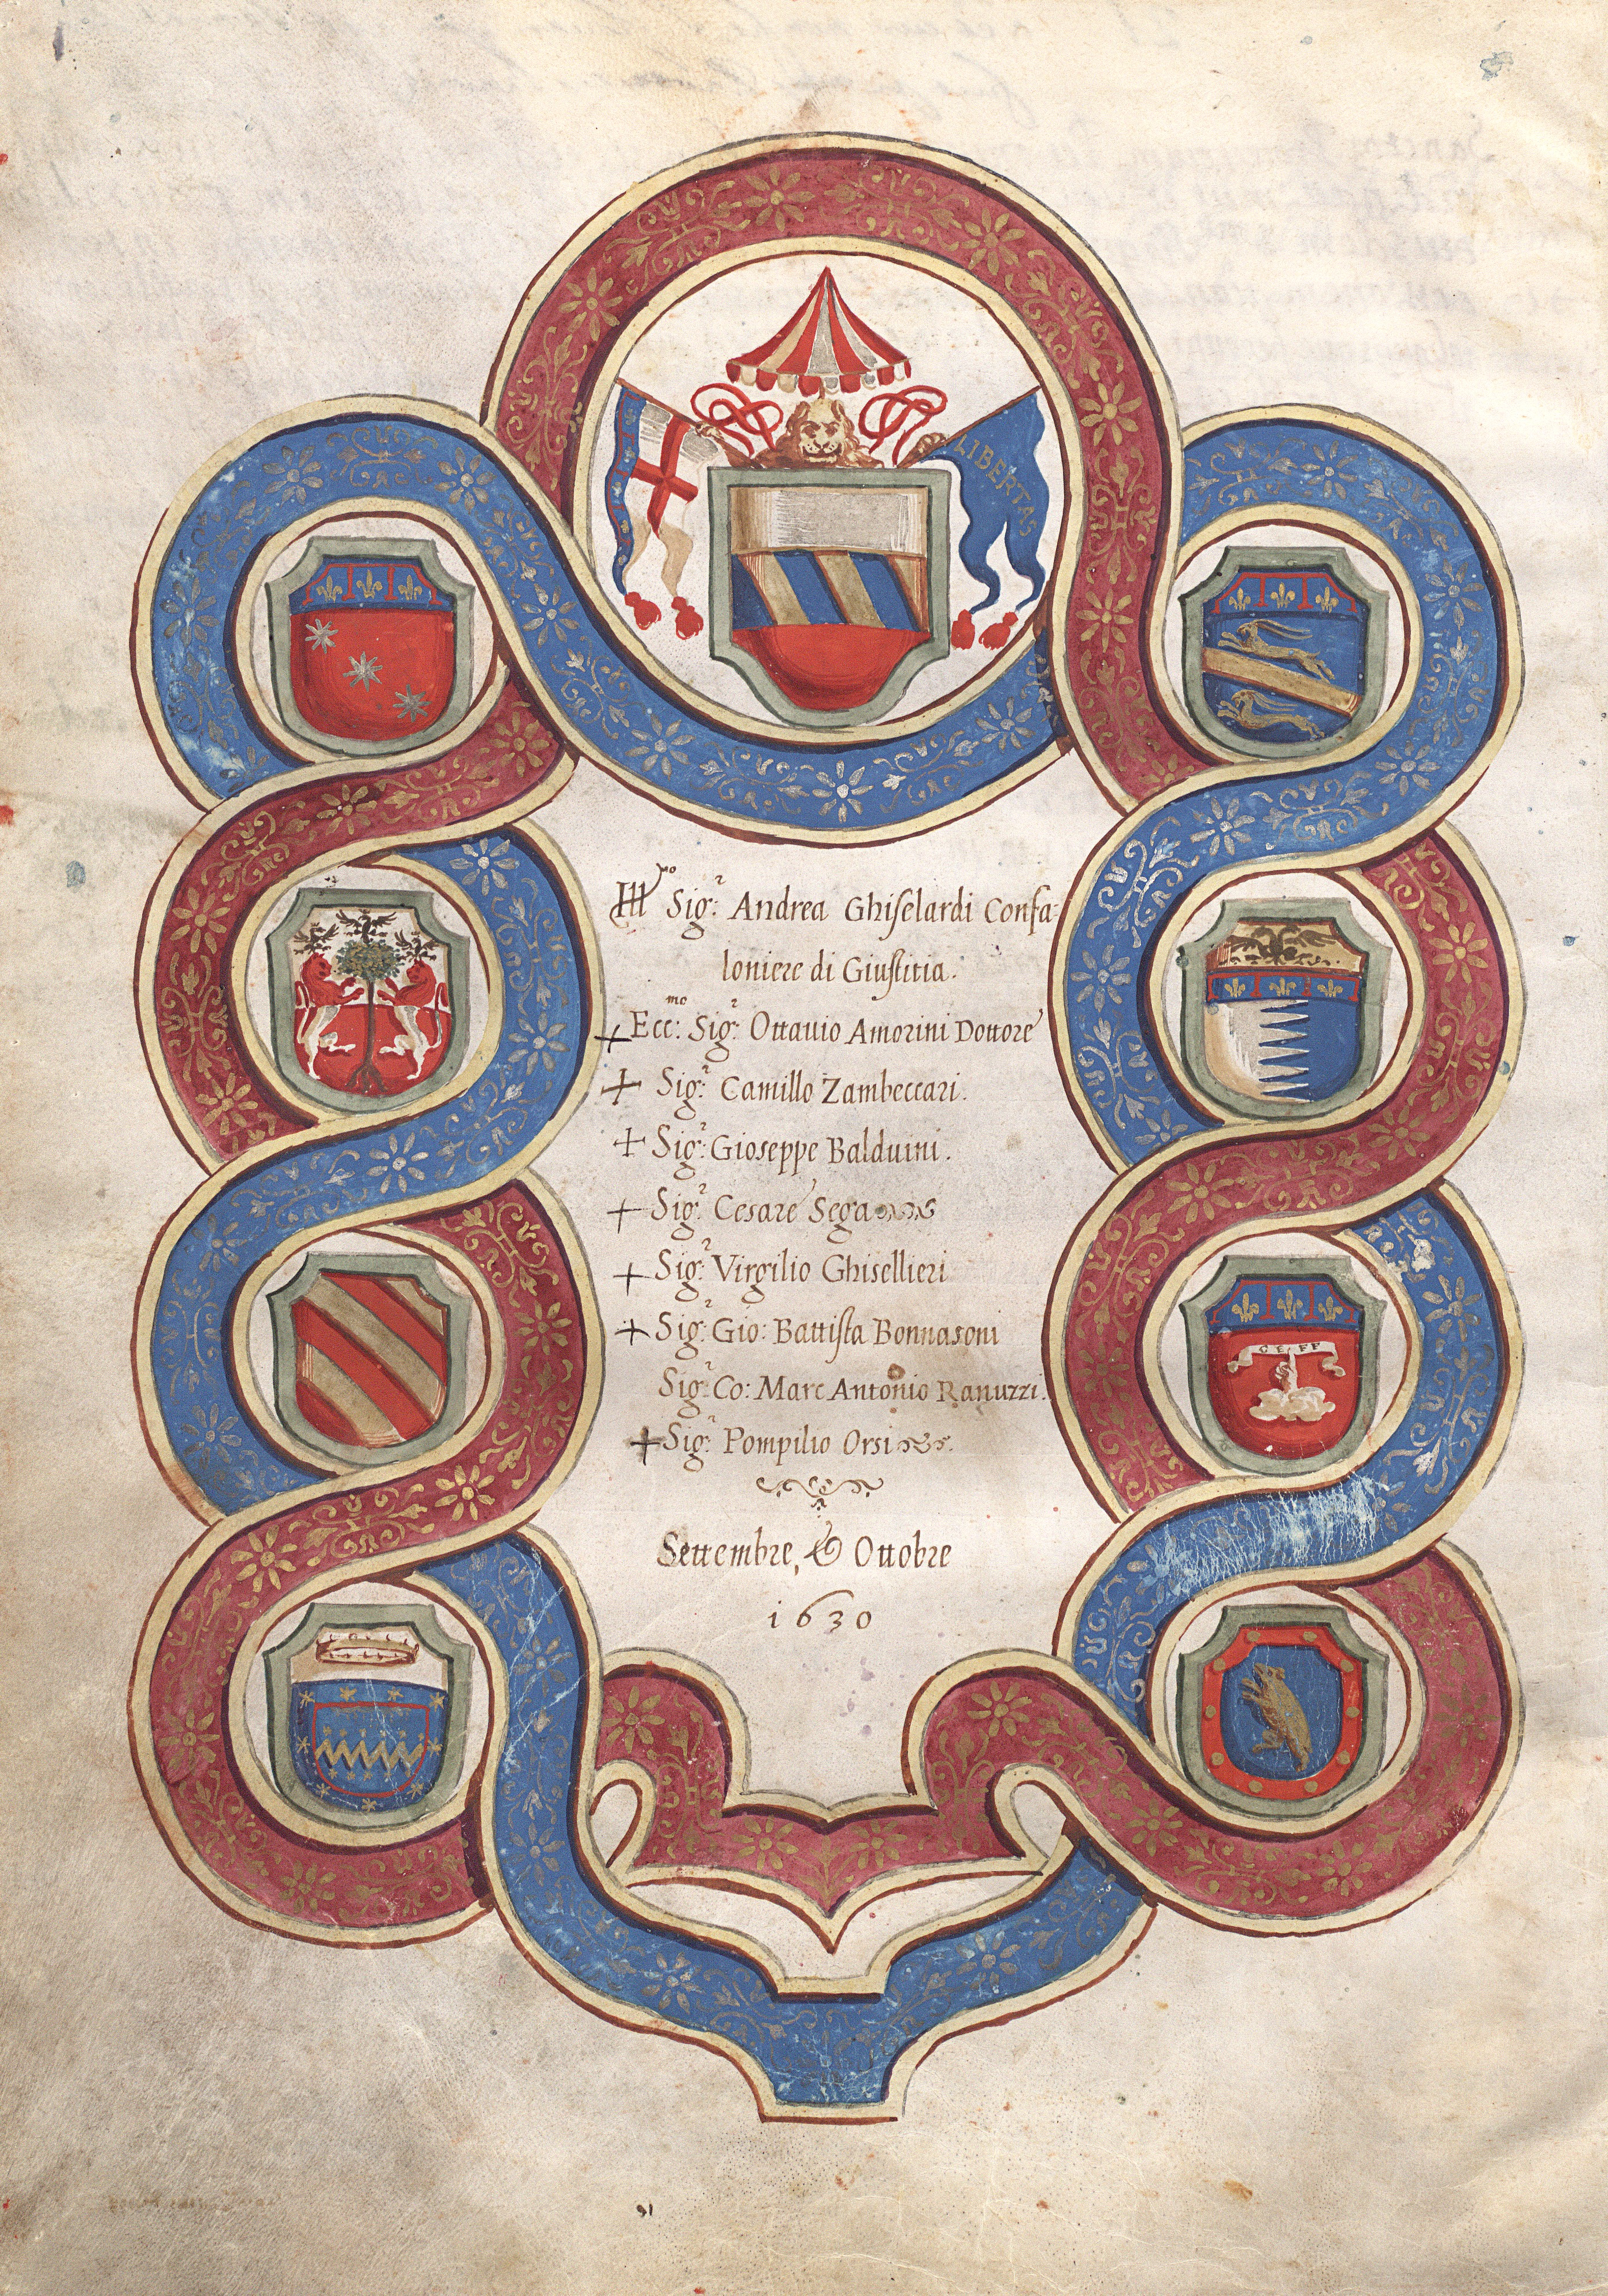 LIBERTAS
Ill.mo Sig.r Andrea Ghiselardi Confa-
loniere di Giustitia.
+ Ecc:mo Sig.r Ottauio Amorini Dottore
+ Sig.r Camillo Zambeccari.
+ Sig.r Gioseppe Balduini.
+ Sig.r Cesare Sega
+ Sig.r Virgilio Ghisellieri
+ Sig.r Gio: Battista Bonnasoni
Sig.r Co: Marc Antonio Ranuzzi.
+ Sig.r Pompilio Orsi
Settembre, & Ottobre
1630